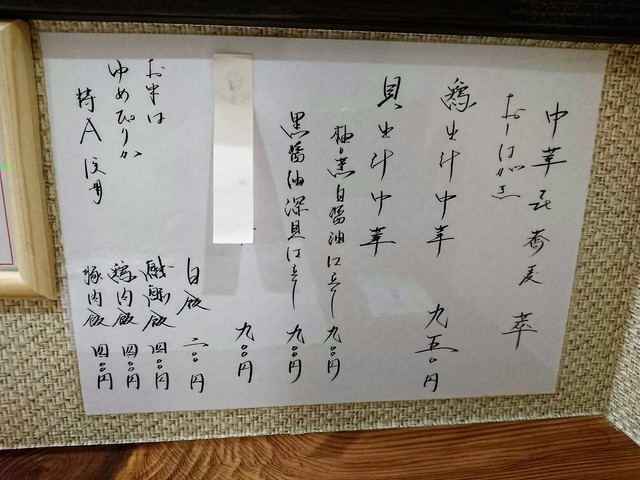 中華そば 蕎麦 萃
おしながき
鶏出汁中華 九五〇円
貝出汁中華
柚香白醤油仕立て 九〇〇円
黒醤油深貝仕立て 九〇〇円
九〇〇円
白飯 二〇〇円
四〇〇円
鶏肉飯 四〇〇円
豚肉飯 四〇〇円
お米は
ゆめぴりか
特A使用